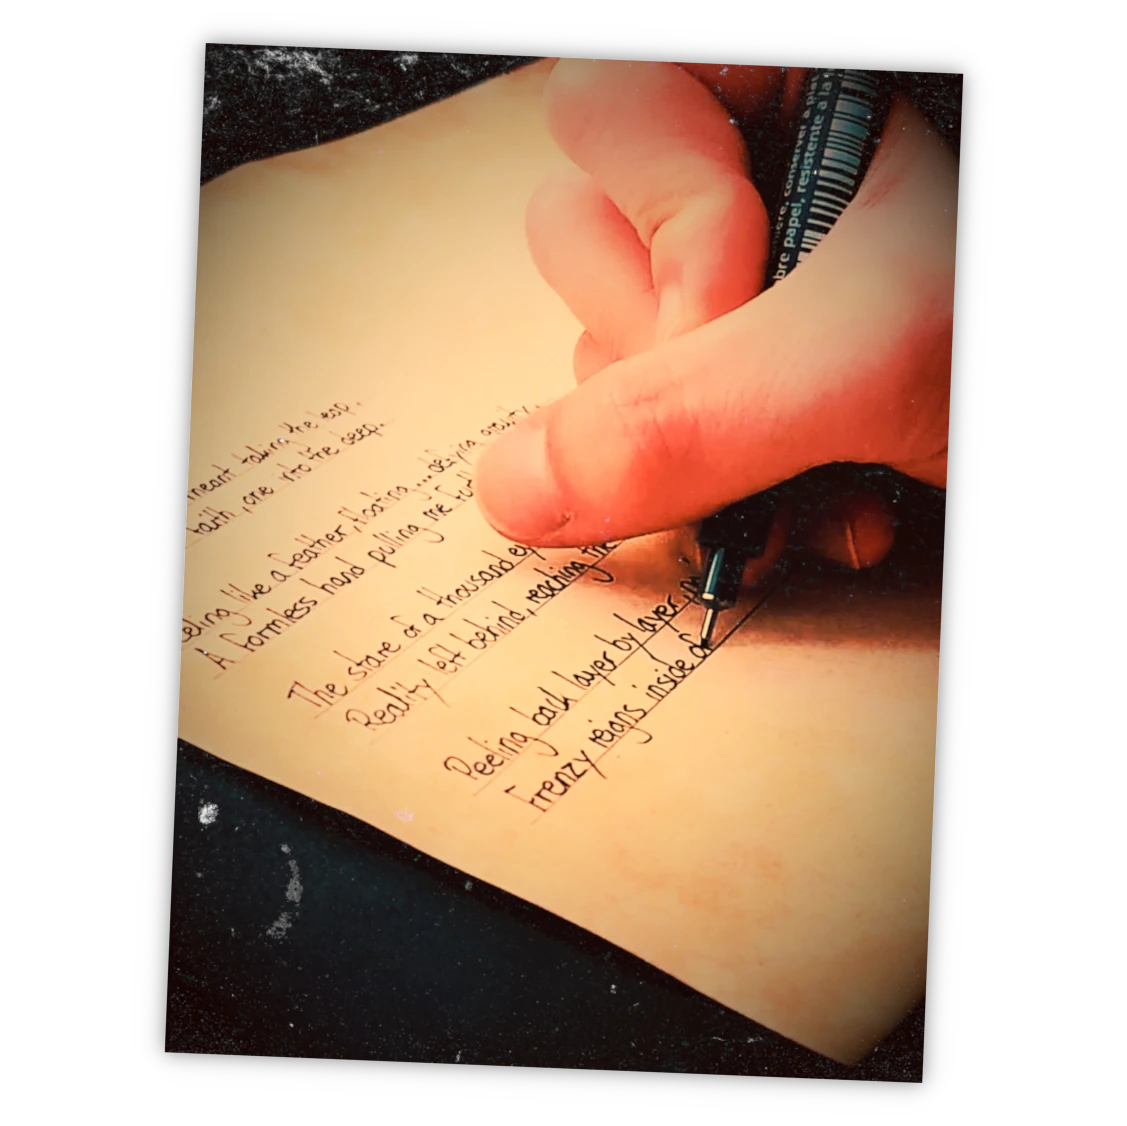 meant taking the leap.
faith, one into the deep.
like a feather, floating ... defying gravity.
A formless hand pulling me
The stare of a thousand
Reality left behind, reaching the
Peeling back layer by layer,
Frenzy reigns inside of
conserver à
bre papel, resistente a la